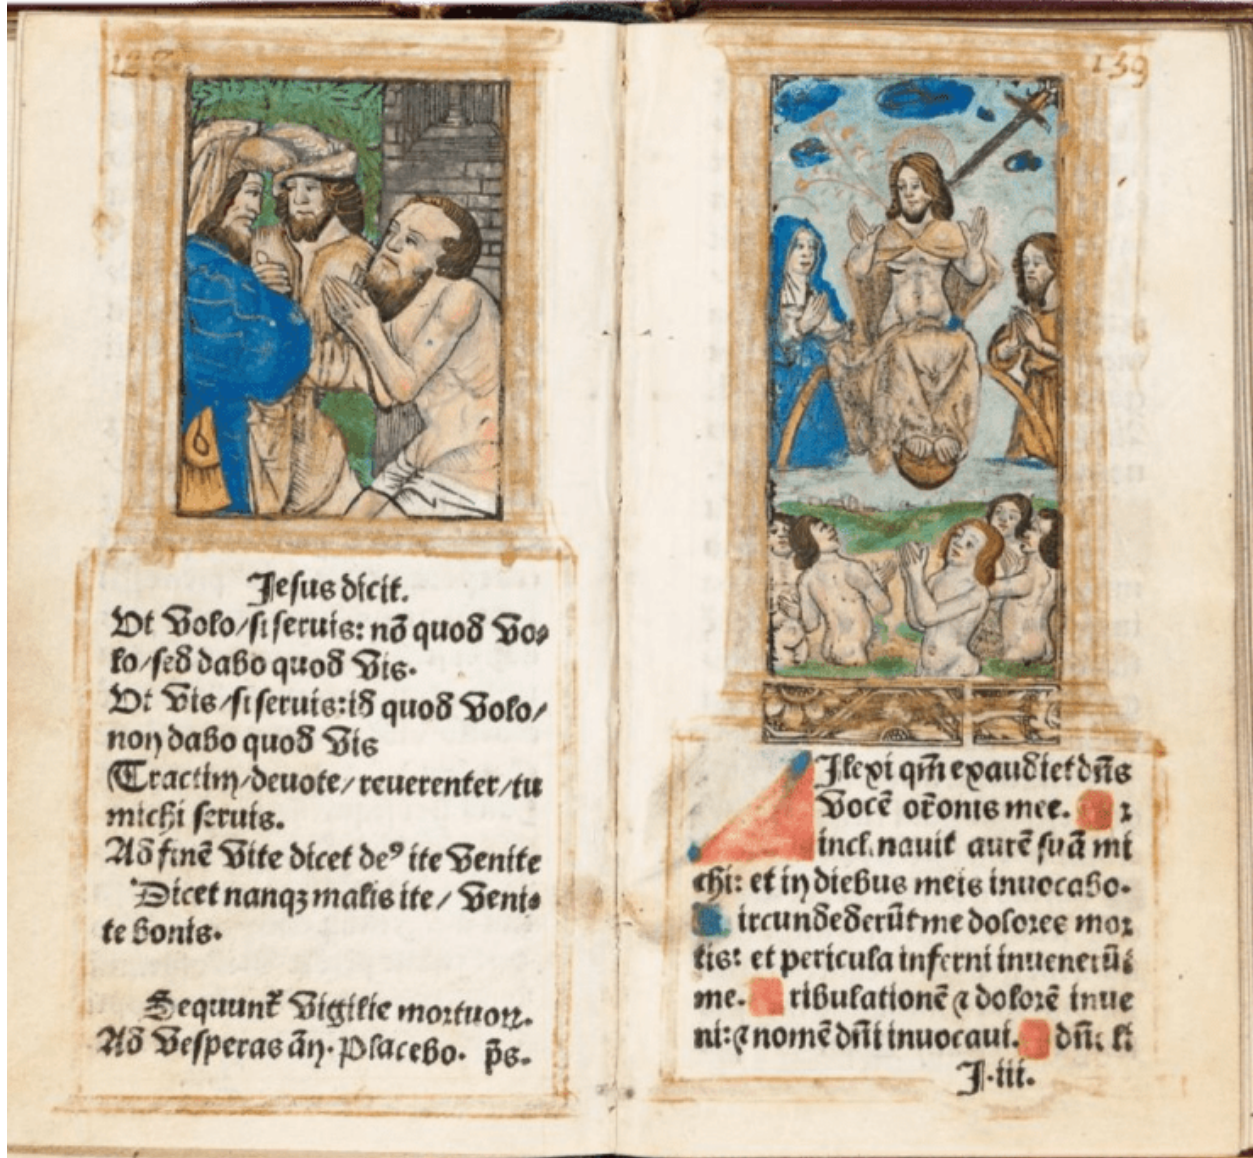 Jesus dicit.
Ut volo/si seruis: nō quod vo-
lo/sed dabo quod vis.
Ut vis/si seruis:id quod volo/
non dabo quod vis
Tractim/deuote/reuerenter/tu
michi seruis.
Ad finē vite dicet deꝰ ite venite
Dicet nanqꝫ malis ite/veni-
te bonis.
Sequunt᷑ vigilie mortuoꝝ.
Ad vesperas añ. Placebo. p̄s.
139
Ilexi qm̄ exaudiet dn̄s
vocē or̄onis mee.
inclinauit aurē suā mi
chi: et in diebus meis inuocabo.
ircundederūt me dolores mor
tis: et pericula inferni inuenerūt
me. ribulationē ⁊ dolorē inue
ni:⁊ nomē dn̄i inuocaui.
J.iii.